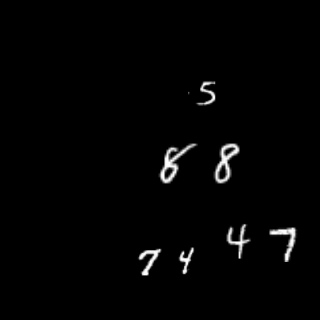 5
8 8
7 4 4 7